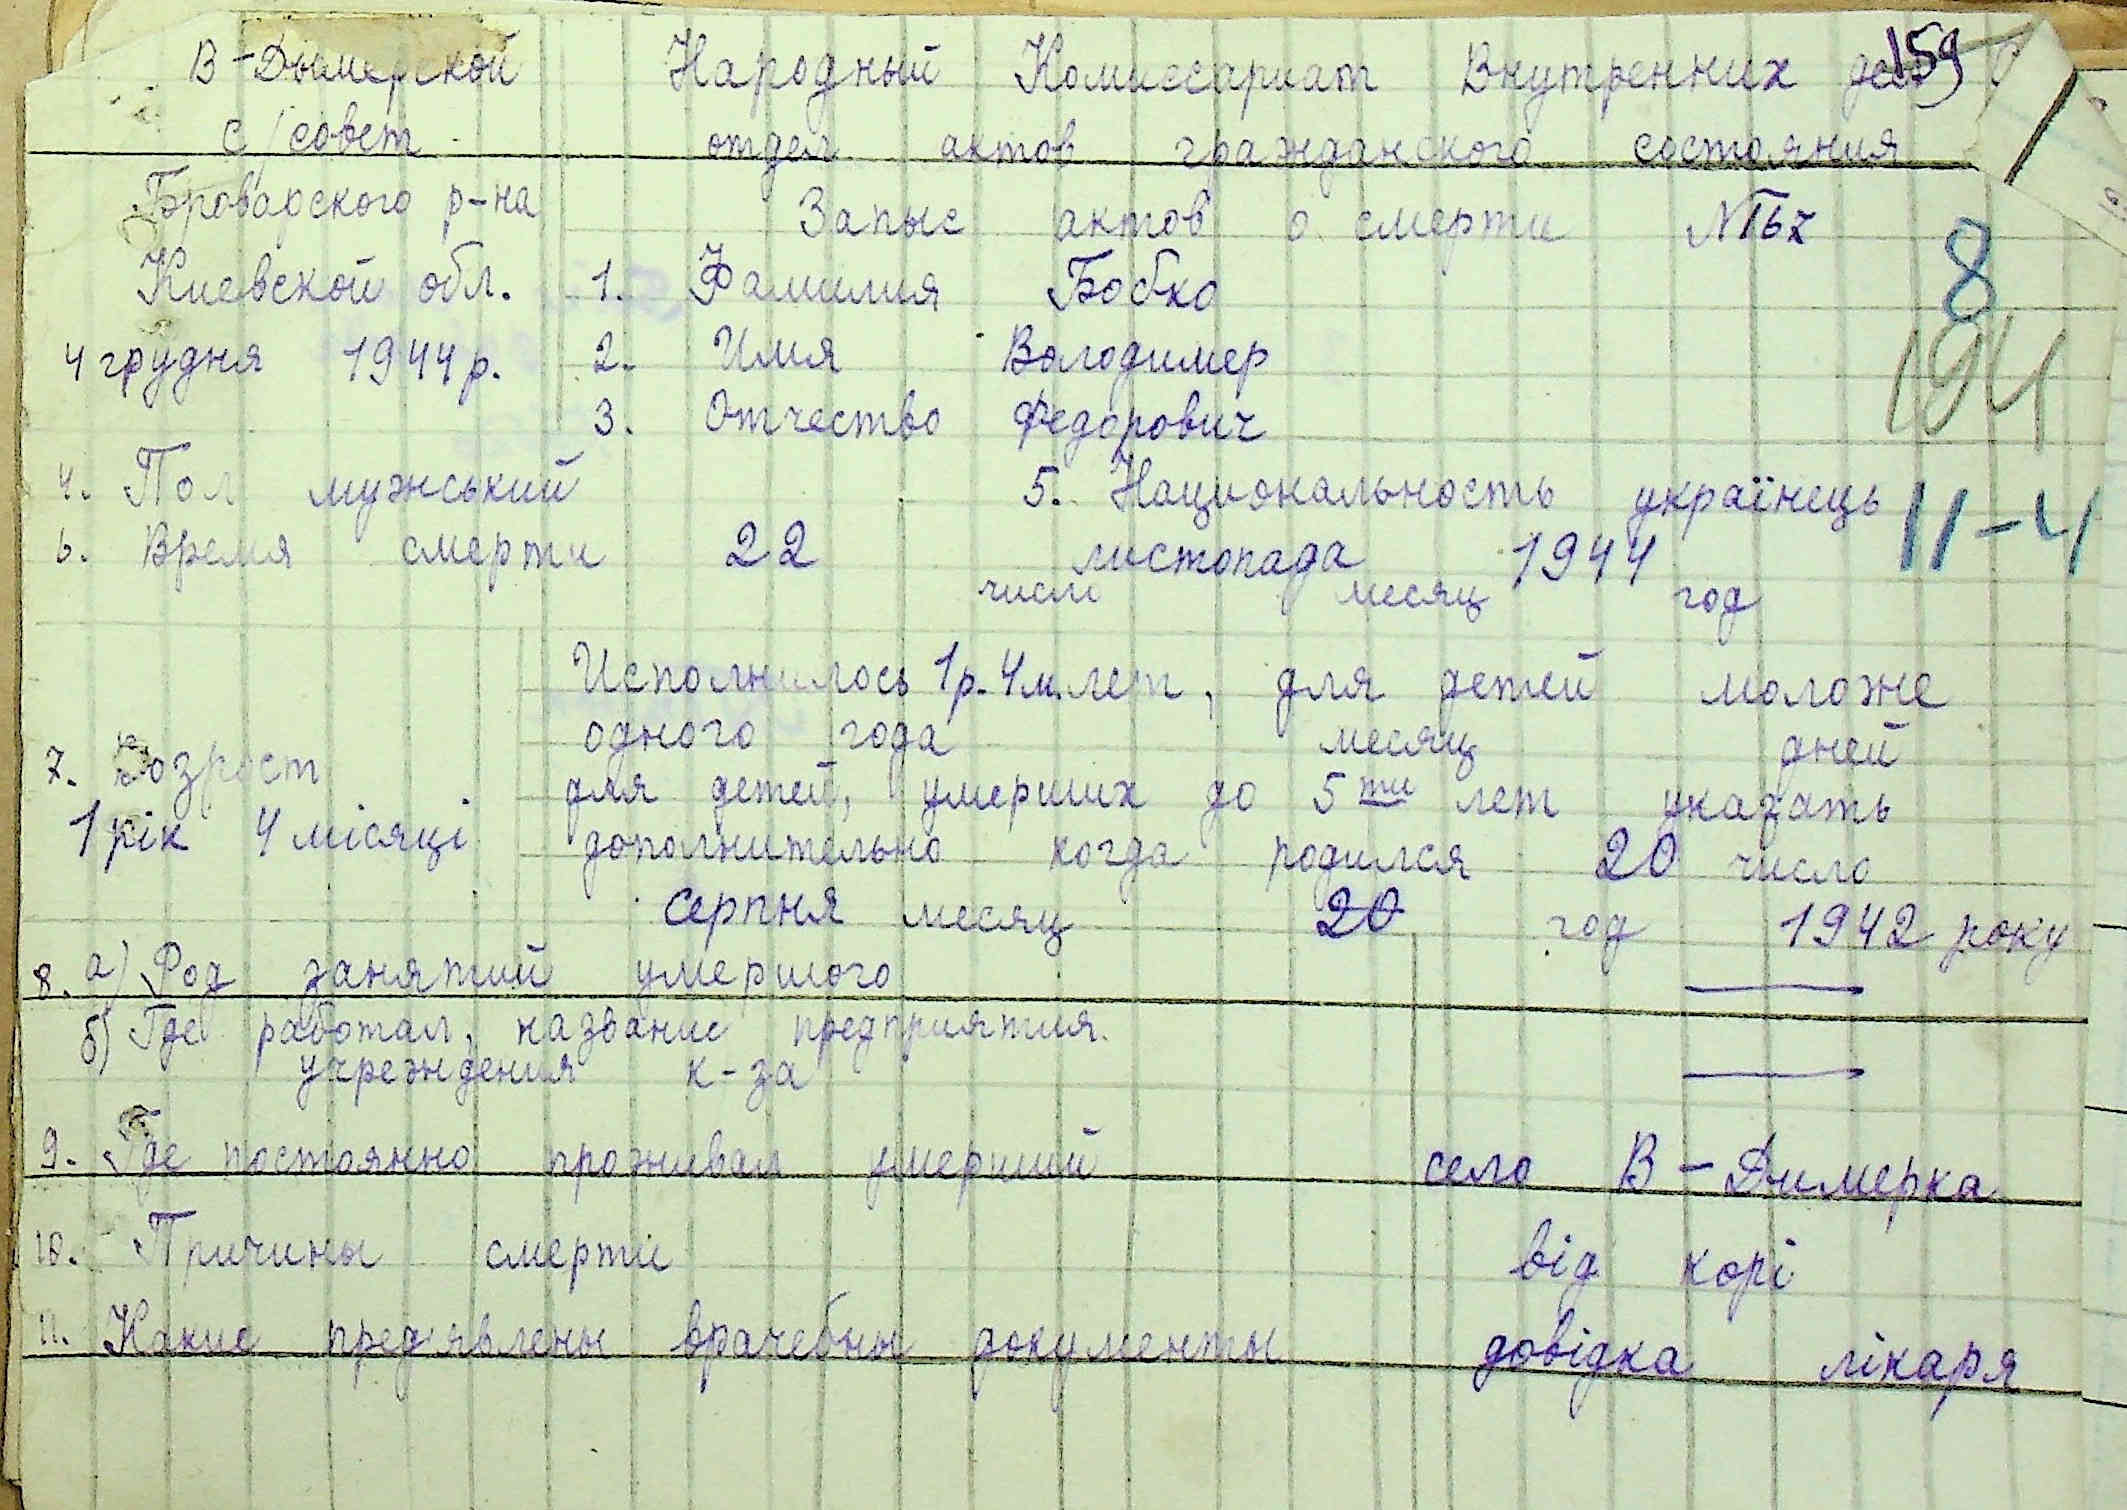 159
В-Дымерской Народный Комиссариат Внутренних дел
с/совет отдел актов гражданского состояния
Броварского р-на Запыс актов о смерти №67
Киевской обл. 1. Фамилия Бобко
8
4 грудня 1944 р. 2. Имя Володимер
194
3. Отчество Федорович
4. Пол мужський 5. Национальность українець
11-4
6. Время смерти 22 листопада 1944
число месяц год
Исполнилось 1р. 4м. лет, для детей моложе
одного года месяц дней
7. Возраст для детей, умерших до 5ти лет указать
1 рік 4 місяці дополнительно когда родился 20 число
серпня месяц 20 год 1942 року
8. а) Род занятий умершого —
б) Где работал, название предприятия.
учреждения к-за —
9. Где постоянно проживал умерший село В-Димерка
10. Причины смерти від корі
11. Какие пред'явлены врачебны документы довідка лікаря